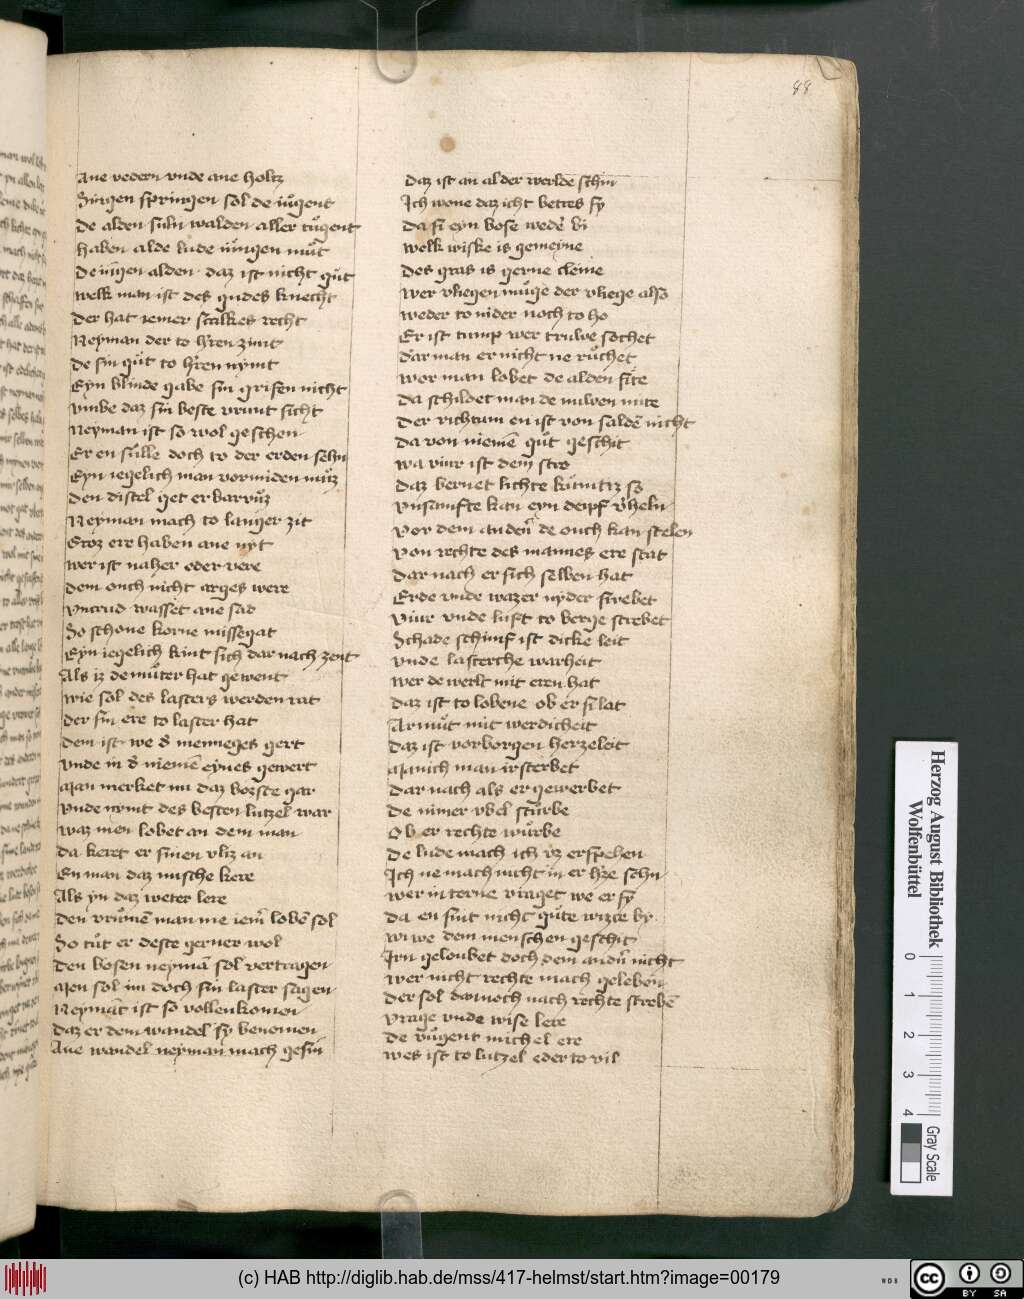 88
Ane vedern vnde ane holtz
Singen springen sol de iůgent
De alden suln walden aller tůgent
haben alde lude iungen můt
De iungen alden daz ist nicht gůt
welk man ist des gudes knecht
Der hat iemer scalkes recht
Neyman der to h'ren zimt
De sin gůt to h'ren nymt
Eyn blinde gabe sin grisen nicht
vmbe daz sin beste vrunt sicht
Neyman ist so wol geschen
Er en sulle doch to der erden sehn
Eyn iegelich man vormiden můz
den distel get er barvůz
Neyman mach to langer zit
Groz ere haben ane nyt
wer ist naher eder vere
dem ouch nicht arges were
vncrud wasset ane sad
So schone korne missegat
Eyn iegelich kint sich dar nach zent
Als iz de můter hat gewent
wie sol des lasters werden rat
der sin ere to laster hat
dem ist we d' menneges gert
vnde in d' niemē eynes gewert
Man merket nu daz bozste gar
vnde nymt des besten lutzel war
waz men lobet an dem man
da keret er sinen vliz an
En man daz nusche kere
Als yn daz weter lere
den vrumē man me iem' lobē sol
So tůt er deste gerner wol
den bosen neymā sol vertragen
Men sol im doch sin laster sagen
Neymāt ist so vollenkomen
daz er dem wandel sy benomen
Ane wandel neyman mach gesin
daz ist an al der werlde schin
Ich wone daz icht bettes sy
da si eyn bose wedē bi
welk wiske is gemeyne
des gras is gerne cleine
wer vliegen muge der vliege also
weder to nider noch to ho
Er ist tump wer truwe sochet
dar man er nicht ne růchet
wor man lobet de alden site
da schildet man de nuwen mite
der richtum en ist von saldē nicht
da von niemē gůt geschit
wa viur ist dem stro
daz bernet lichte kumtiz so
vnsamfte kan eyn deipf v'heln
vor dem andern de ouch kan stelen
von rechte des mannes ere stat
dar nach er sich selben hat
Erde vnde wazer nyder strebet
viur vnde luft to berge strebet
Schade schimf ist dicke leit
vnde lasterche warheit
wer de werlt mit eren hat
daz ist to lobene ob er si lat
Armůt mit werdicheit
daz ist vorborgen herzeleit
Manich man irsterbet
dar nach als er gewerbet
de nimer vbel sturbe
Ob er rechte wůrbe
de lude mach ich vz erspehen
Ich ne mach nicht in er h'ze sehn
wer in terne vraget we er sy
da en sint nicht gůte wizte by
wi we dem menschen geschit
Irn geloubet doch dem andn' nicht
wer nicht rechte mach geleben
der sol dannoch nach rechte strebē
vrage vnde wise lere
de vůgent michel ere
wes ist to lutzel eder to vil
Herzog August Bibliothek
Wolfenbüttel
0 1 2 3 4
Gray Scale
(c) HAB http://diglib.hab.de/mss/417-helmst/start.htm?image=00179
WDB
cc BY SA